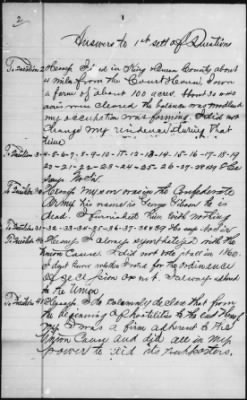 2
Answers to 1st sett of Questions
To Question 2 He says I li'ed in King & Queen County about
a mile from the Court House, I own
a farm of about 100 acres. About 30 or 40
acres were cleared the balance was woodland
my occupation was farming. I did not
change my residence during that
time
To Question 3-4-5-6-7-8-9-10-11-12-13-14-15-16-17-18-19
20-21-22-23-24-25-26-27-28
says No Sir
To Question He says My son was in the Confederate
Army his name is George he is
dead. I furnished him with nothing
To Question 31-32-33-34-35-36-37-38 & 39 He says No Sir
To Question 40 He says I always sympathized with the
Union Cause I did not vote at all in 1860.
I don't know whether I voted for the ordinance
of secession or not. I always adhered
to the Union
To Question 41 He says I do solemnly declare that from
the beginning of hostilities to the end thereof
I was a firm adherent to the
Union Cause and did all in my
power to aid its supporters.